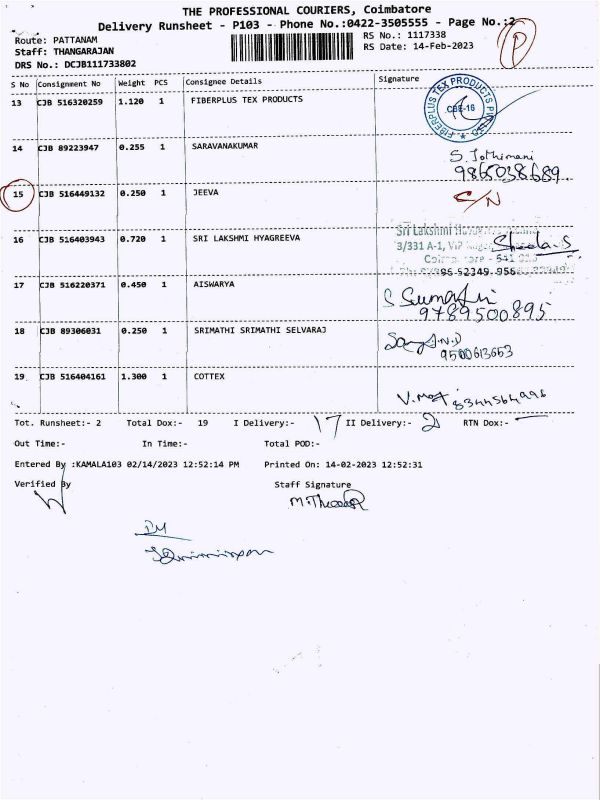 THE PROFESSIONAL COURIERS, Coimbatore
Delivery Runsheet - P103 - Phone No.:0422-3505555 - Page No.:2
Route: PATTANAM
RS No.: 1117338
Staff: THANGARAJAN
RS Date: 14-Feb-2023
DRS No.: DCJB111733802
P
S No Consignment No Weight PCS Consignee Details Signature
13 CJB 516320259 1.120 1 FIBERPLUS TEX PRODUCTS
FIBERPLUS TEX PRODUCTS PVT LTD
CBE-16
14 CJB 89223947 0.255 1 SARAVANAKUMAR
S. Jothimani
9865038689
15 CJB 516449132 0.250 1 JEEVA C/N
16 CJB 516403943 0.720 1 SRI LAKSHMI HYAGREEVA
Sri Lakshmi
3/331 A-1, VIP Nagar
Sheela.S
17 CJB 516220371 0.450 1 AISWARYA
9789500895
18 CJB 89306031 0.250 1 SRIMATHI SRIMATHI SELVARAJ
9500613653
19 CJB 516404161 1.300 1 COTTEX
8344564996
Tot. Runsheet:- 2 Total Dox:- 19 I Delivery:- 17 II Delivery:- 2 RTN Dox:- —
Out Time:- In Time:- Total POD:-
Entered By :KAMALA103 02/14/2023 12:52:14 PM Printed On: 14-02-2023 12:52:31
Verified By Staff Signature